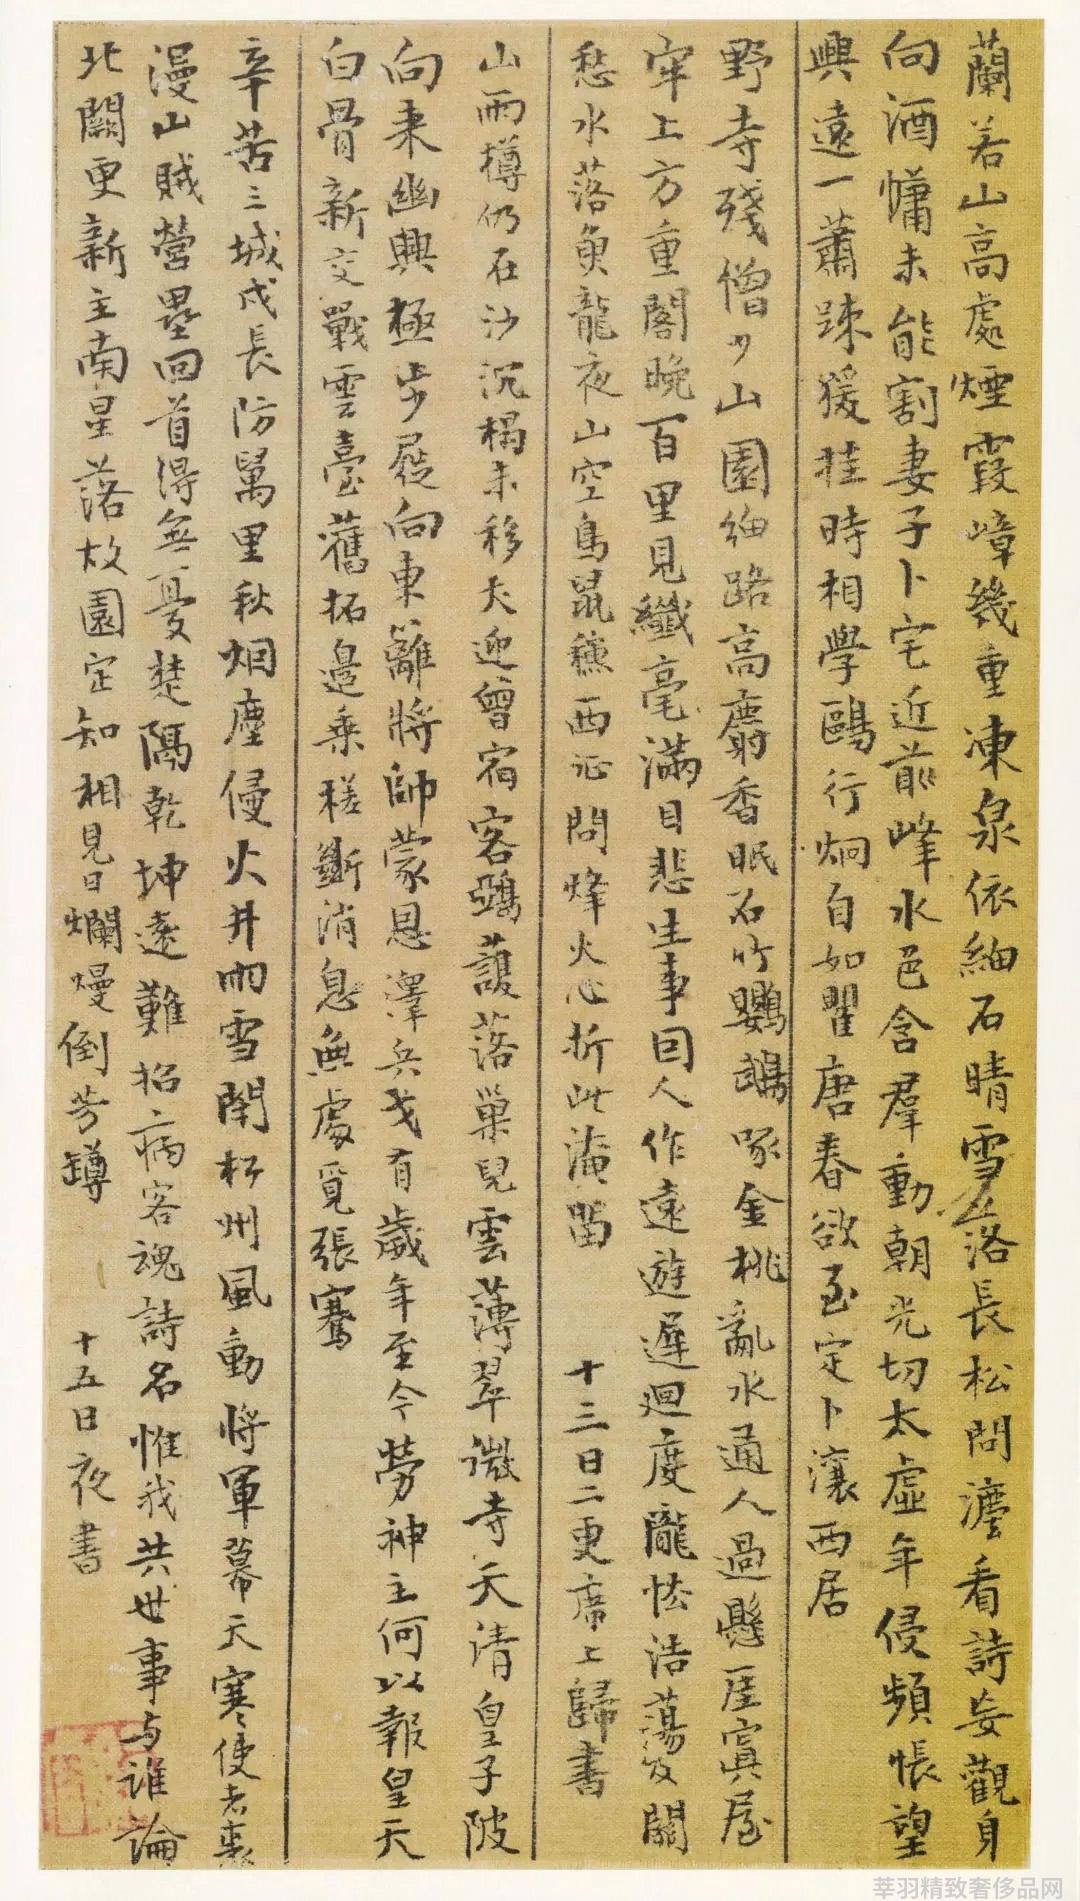 蘭若山高處煙霞嶂幾重凍泉依細石晴雪落長松問灋看詩妄觀身
向酒慵未能割妻子卜宅近前峰水色含羣動朝光切太虛年侵頻悵望
興遠一蕭踈猨挂時相學鷗行炯自如瞿唐春欲至定卜瀼西居
野寺殘僧少山園細路高麝香眠石竹鸚鵡啄金桃亂水通人過懸崖寘屋
牢上方重閣晚百里見纖毫滿目悲生事因人作遠遊遲迴度隴怯浩蕩及關
愁水落魚龍夜山空鳥鼠穐西征問烽火心折此淹留 十三日二更席上歸書
山雨樽仍在沙沉榻未移犬迎曾宿客鵶護落巢兒雲薄翠微寺天清皇子陂
向來幽興極步屧向東籬將帥蒙恩澤兵戈有歲年至今勞神主何以報皇天
白骨新交戰雲臺舊拓邊乘槎斷消息無處覓張騫
辛苦三城戍長防萬里秋烟塵侵火井雨雪閉松州風動將軍幕天寒使者裘
漫山賊營壘回首得無憂楚隔乾坤遠難招病客魂詩名惟我共世事与誰論
北闕更新主南星落故園定知相見日爛熳倒芳罇 十五日夜書
莘羽精致奢侈品网